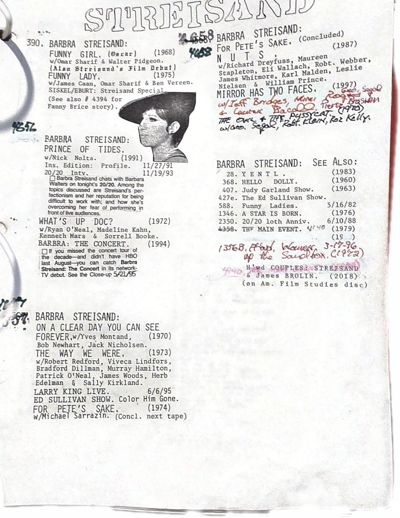 STREISAND
390. BARBRA STREISAND:
FUNNY GIRL. (Oscar) (1968)
w/Omar Sharif & Walter Pidgeon.
(Also Streisand's Film Debut)
FUNNY LADY. (1975)
w/James Caan, Omar Sharif & Ben Vereen.
SISKEL/EBURT: Streisand Special.
(See also # 4394 for
Fanny Brice story)
BARBRA STREISAND:
PRINCE OF TIDES.
w/Nick Nolta. (1991)
Ins. Edition: Profile. 11/27/91
20/20 Intv. 11/19/93
Barbra Streisand chats with Barbara
Walters on tonight's 20/20. Among the
topics discussed are Streisand's per-
fectionism and her reputation for being
difficult to work with; and how she's
overcoming her fear of performing in
front of live audiences.
WHAT'S UP DOC? (1972)
w/Ryan O'Neal, Madeline Kahn,
Kenneth Mars & Sorrell Booke.
BARBRA: THE CONCERT. (1994)
If you missed the concert tour
of the decade—and didn't have HBO
last August—you can catch Barbra
Streisand: The Concert in its network-
TV debut. See the Close-up 5/21/95
BARBRA STREISAND:
ON A CLEAR DAY YOU CAN SEE
FOREVER.w/Yves Montand, (1970)
Bob Newhart, Jack Nicholsen.
THE WAY WE WERE. (1973)
w/Robert Redford, Viveca Lindfors,
Bradford Dillman, Murray Hamilton,
Patrick O'Neal, James Woods, Herb
Edelman & Sally Kirkland.
LARRY KING LIVE. 6/6/95
ED SULLIVAN SHOW. Color Him Gone.
FOR PETE'S SAKE. (1974)
w/Michael Sarrazin. (Concl. next tape)
658
BARBRA STREISAND:
FOR PETE'S SAKE. (Concluded)
NUTS. (1987)
w/Richard Dreyfuss, Maureen
Stapleton, Eli Wallach, Robt. Webber,
James Whitmore, Karl Malden, Leslie
Nielsen & William Prince.
MIRROR HAS TWO FACES. (1997)
w/Jeff Bridges,
THE OWL & THE PUSSYCAT
w/Geo. Segal, Robt. Klein, Roz Kelly.
BARBRA STREISAND: SEE ALSO:
28. YENTL. (1983)
368. HELLO DOLLY. (1960)
407. Judy Garland Show. (1963)
427e. The Ed Sullivan Show.
588. Funny Ladies. 5/16/82
1346. A STAR IS BORN. (1976)
2350. 20/20 10th Anniv. 6/10/88
THE MAIN EVENT. (1979)
up the Sandbox. (1972)
COUPLES: STREISAND
& James BROLIN. (2018)
(on Am. Film Studies disc)